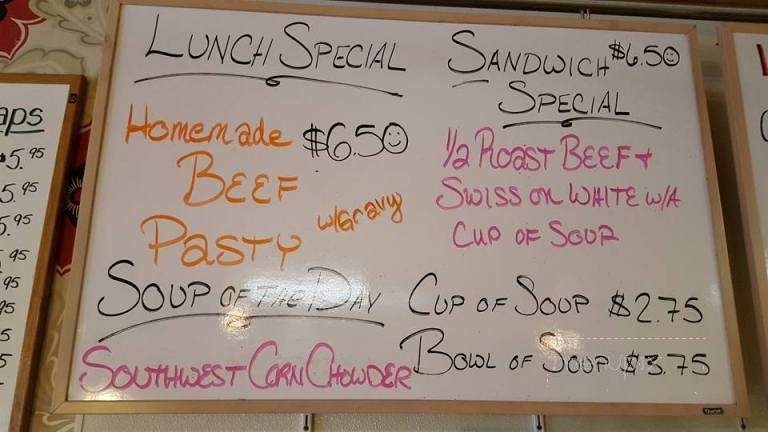 LUNCH SPECIAL
Homemade $6.50
BEEF
PASTY w/Gravy
SANDWICH $6.50
SPECIAL
1/2 ROAST BEEF +
SWISS ON WHITE W/A
CUP OF SOUP
SOUP OF THE DAY
SOUTHWEST CORN CHOWDER
CUP OF SOUP $2.75
BOWL OF SOUP $3.75
aps
$5.95
5.95
5.95
.95
95
95
5
5